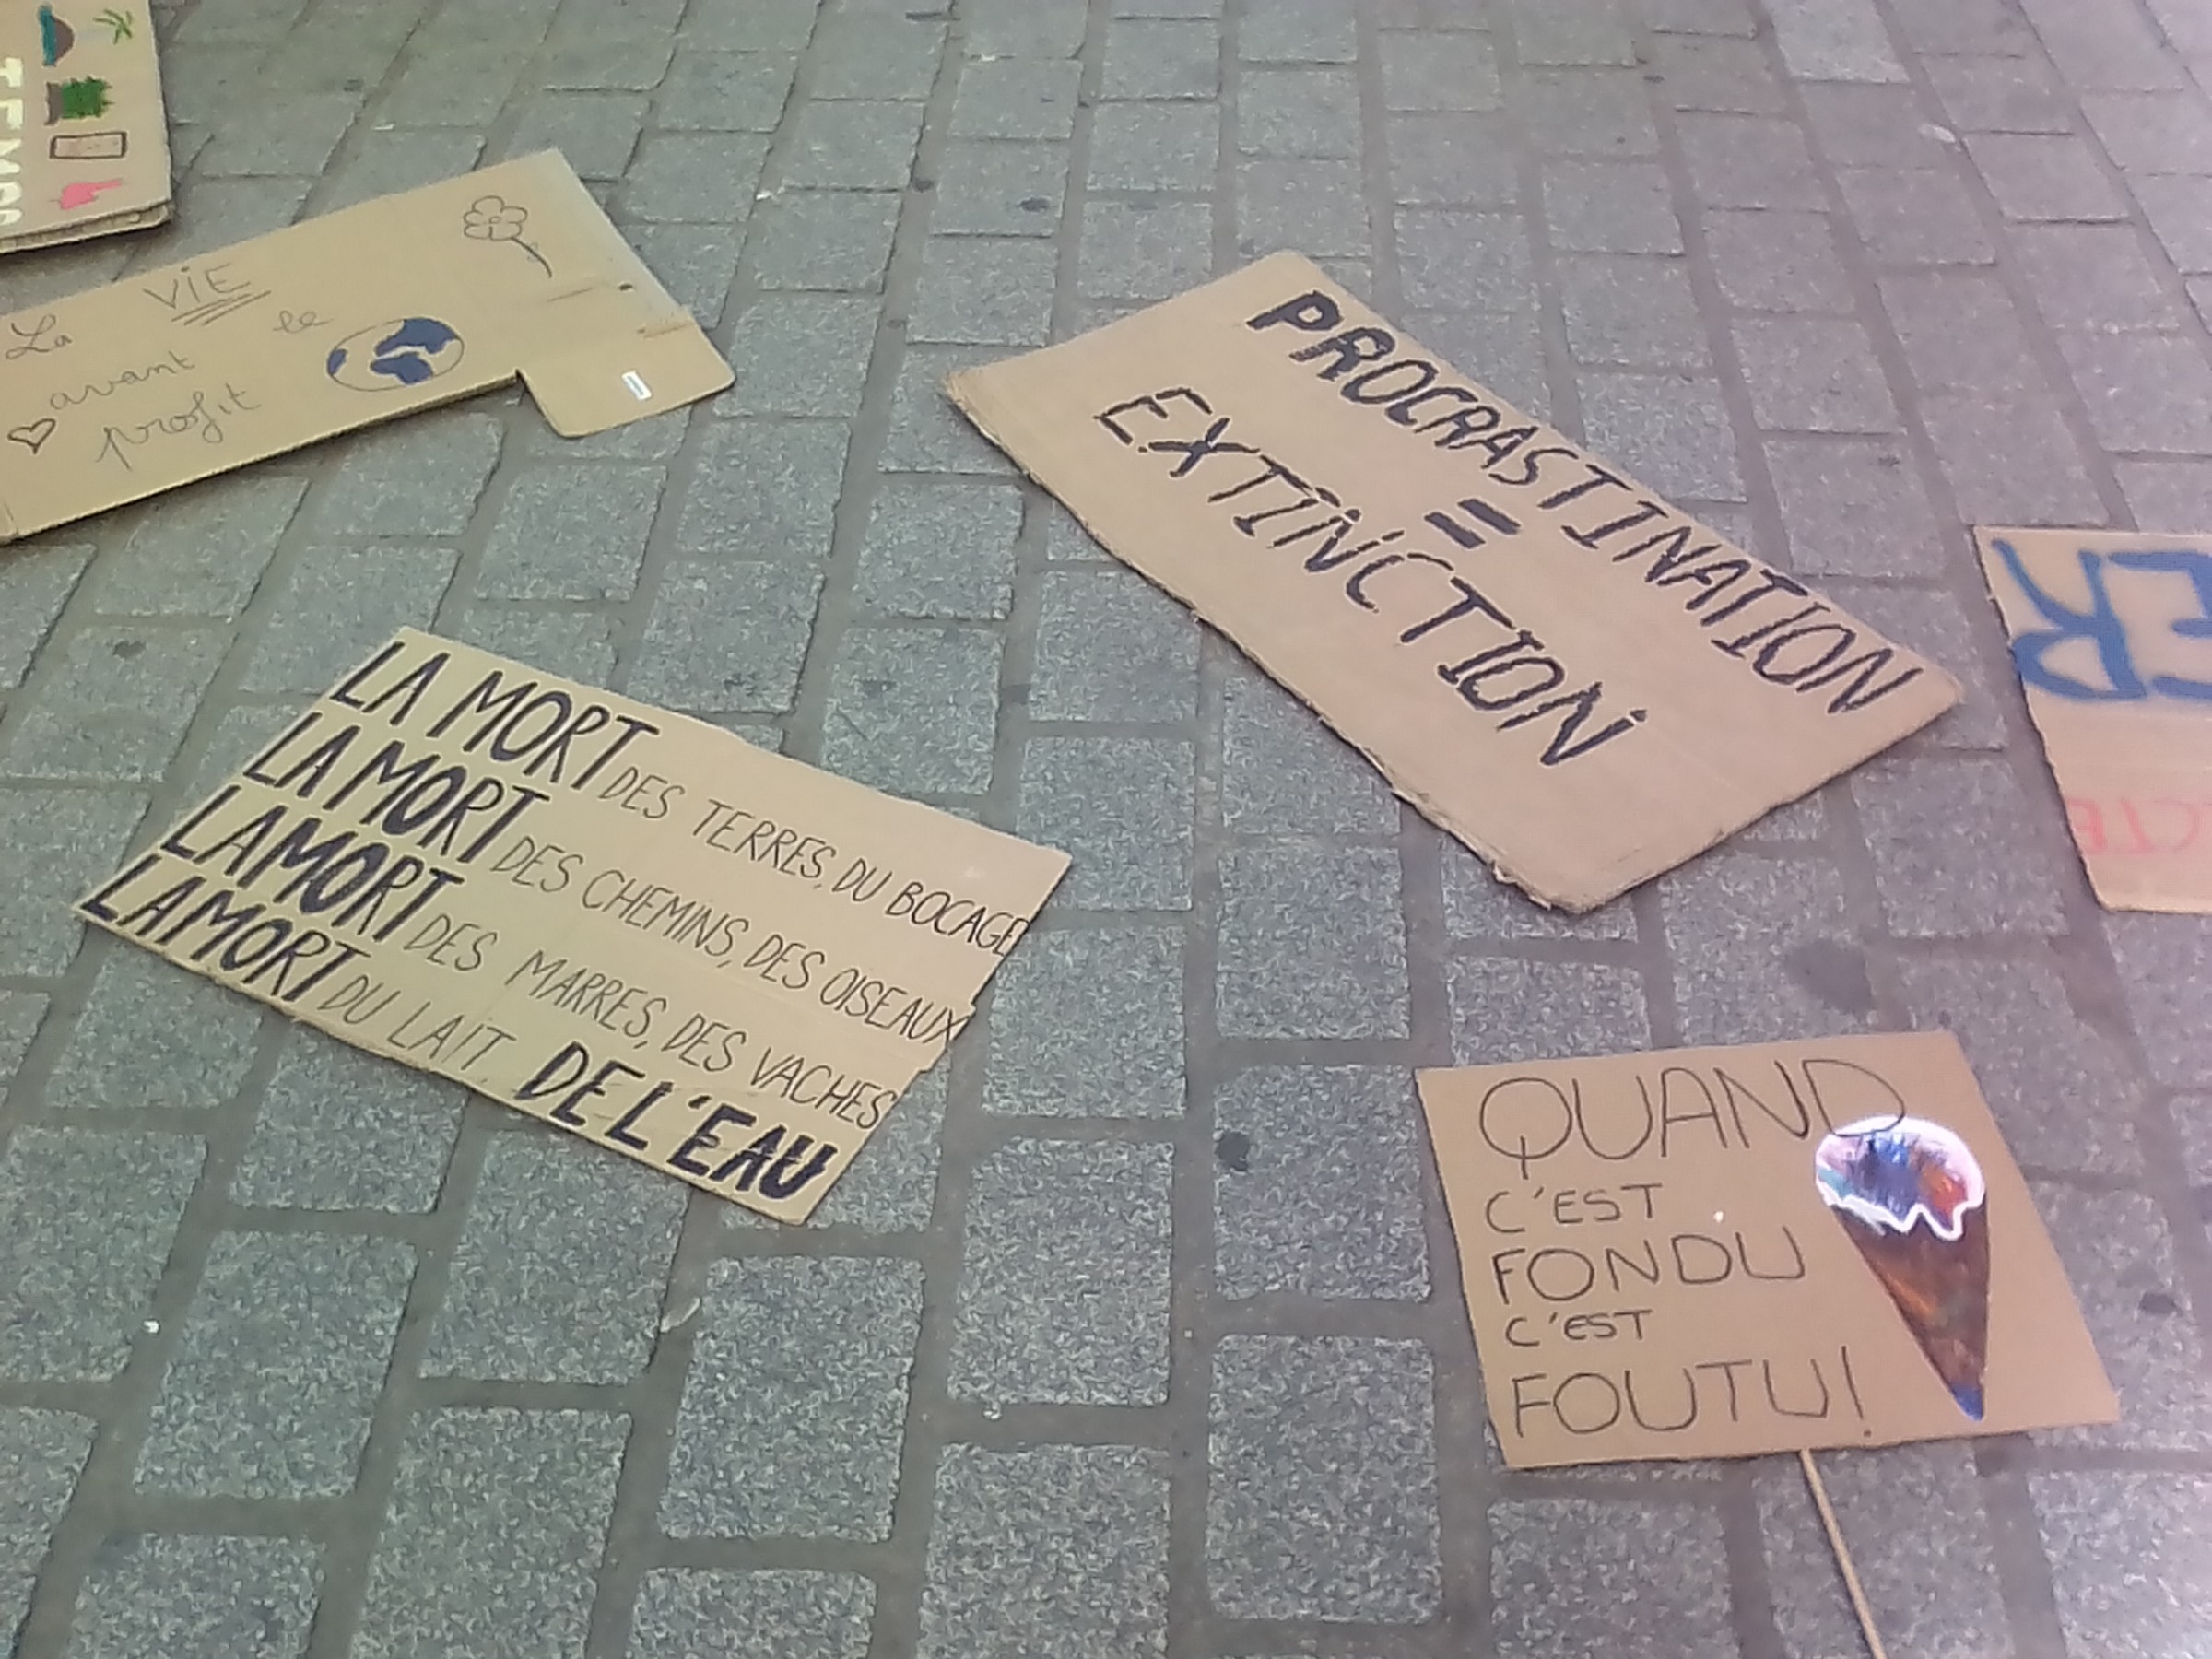 La VIE
avant le
profit
PROCRASTINATION
=
EXTINCTION
LA MORT DES TERRES, DU BOCAGE
LA MORT DES CHEMINS, DES OISEAUX
LA MORT DES MARRES, DES VACHES
LA MORT DU LAIT, DE L'EAU
QUAND
C'EST
FONDU
C'EST
FOUTU!